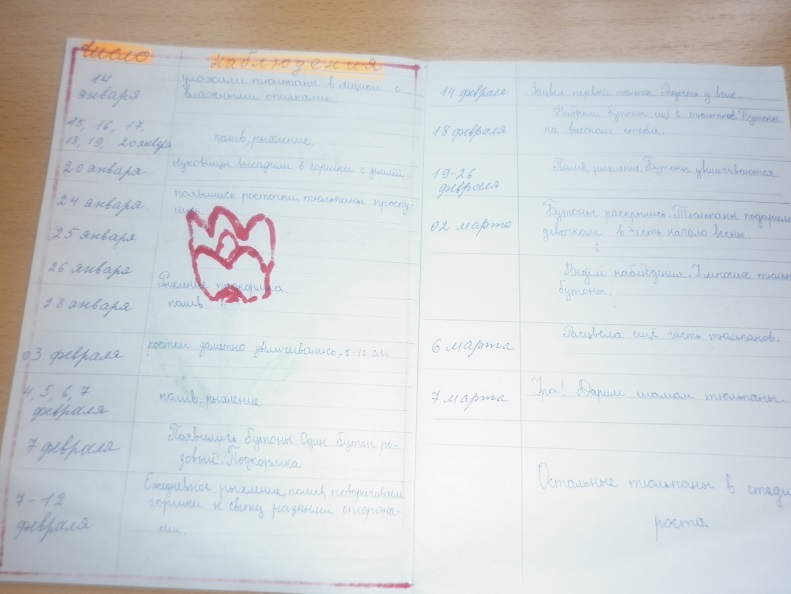 число наблюдения
14
января
уложили тюльпаны в ящики с
влажными опилками
15, 16, 17,
18, 19, 20 января
полив, рыхление.
20 января
Луковицы высадили в горшки с землёй
24 января
появились росточки, тюльпаны
25 января
26 января
Рыхление подкормка.
28 января
полив
03 февраля
ростки заметно увеличивались, 5-10 см
4, 5, 6, 7
февраля
полив, рыхление
7 февраля
Появились бутоны. Один бутон ро-
зовый. Подкормка
7-12
февраля
Ежедневное рыхление, полив, поворачиваем
горшки к свету разными сторона-
ми.
14 февраля
первый тюльпан. Радость у всех.
18 февраля
бутоны ещё 6 тюльпанов. Бутоны
на высоком стебле.
19-26
февраля
Полив, рыхление. Бутоны увеличиваются.
02 марта
Бутоны раскрылись. Тюльпаны подарили
девочкам в честь начало весны.
Ведём наблюдения. У многих
бутоны.
6 марта
Расцвела ещё часть тюльпанов.
7 марта
Ура! Дарим мамам тюльпаны.
Остальные тюльпаны в стади
роста